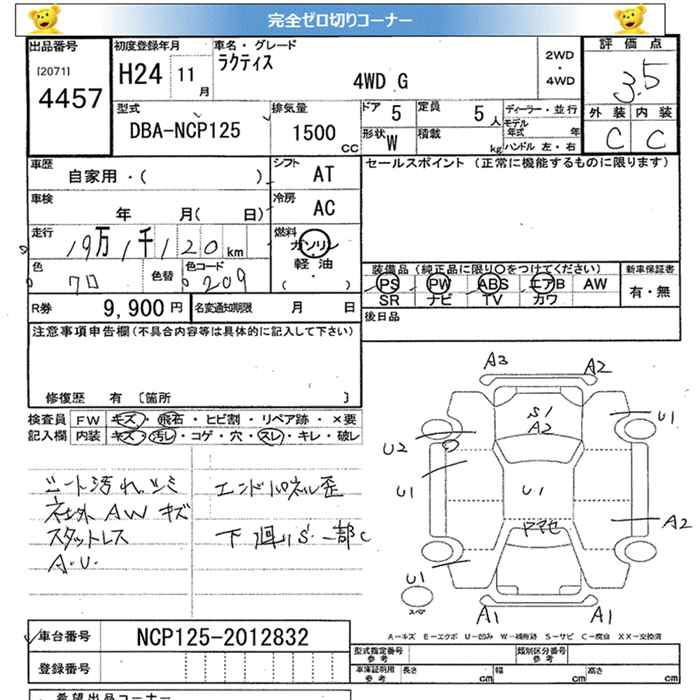 完全ゼロ切りコーナー
出品番号 初度登録年月 車名・グレード 2WD・4WD 評価点
[2071] 4457 H24 11月 ラクティス 4WD G 3.5
型式 DBA-NCP125 排気量 1500 CC
ドア 5 定員 5人 ディーラー・並行
モデル年式 年 外装 内装
形状 W 積載 kg ハンドル 左・右 C C
車歴 自家用・( ) シフト AT セールスポイント (正常に機能するものに限ります)
車検 年 月( 日) 冷房 AC
走行 19万1千120km 燃料 ガソリン 軽油 ( )
色 クロ 色替 色コード 209
装備品 (純正品に限り○をつけてください) 新車保証書
PS PW ABS エアB AW 有・無
SR ナビ TV カワ
R券 9,900円 名変通知期限 月 日 後日品
注意事項申告欄(不具合内容等は具体的に記入して下さい)
修復歴 有 〔箇所 〕
検査員 FW キズ・飛石・ヒビ割・リペア跡・×要
記入欄 内装 キズ・汚レ・コゲ・穴・スレ・キレ・破レ
シート汚れ シミ エンドパネル歪
社外AW キズ
スタットレス 下廻りS・一部C
A.U.
A3 A2
S1 A2 U1
U2
U1 U1
ヤマセ A2
U1
スペア A1 A1
A-キズ E-エクボ U-凹み W-補修跡 S-サビ C-腐食 XX-交換済
車台番号 NCP125-2012832
型式指定番号 参考 類別区分番号 参考
登録番号 車庫証明用 参考 長さ cm 幅 cm 高さ cm
希望出品コーナー